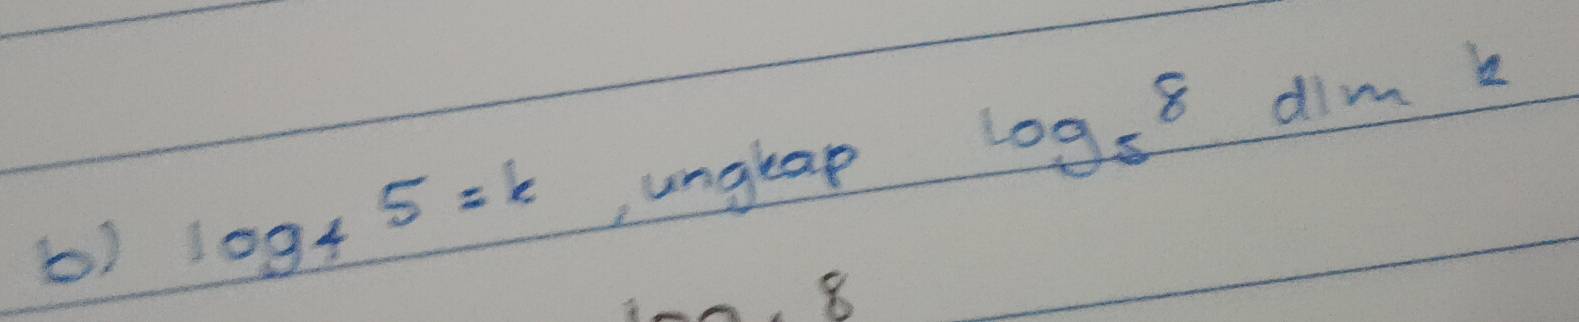 b) log₄ 5 = k , ungkap log₅ 8 dlm k
8